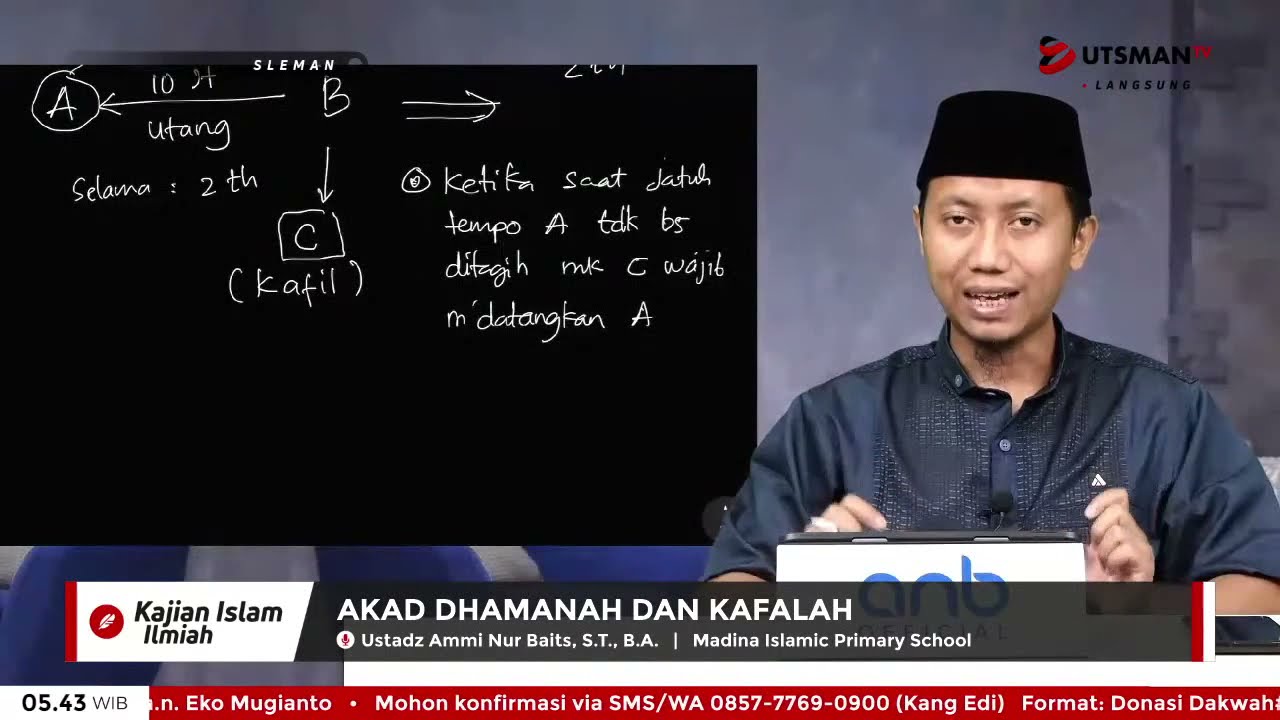 SLEMAN
UTSMAN TV
• LANGSUNG
A
10 jt
utang
B
Selama : 2 th
C
(Kafil)
Ketika saat jatuh
tempo A tdk bs
ditagih mk C wajib
m'datangkan A
anb
OFFICIAL
Kajian Islam
Ilmiah
AKAD DHAMANAH DAN KAFALAH
Ustadz Ammi Nur Baits, S.T., B.A. | Madina Islamic Primary School
05.43 WIB
a.n. Eko Mugianto • Mohon konfirmasi via SMS/WA 0857-7769-0900 (Kang Edi) Format: Donasi Dakwah#